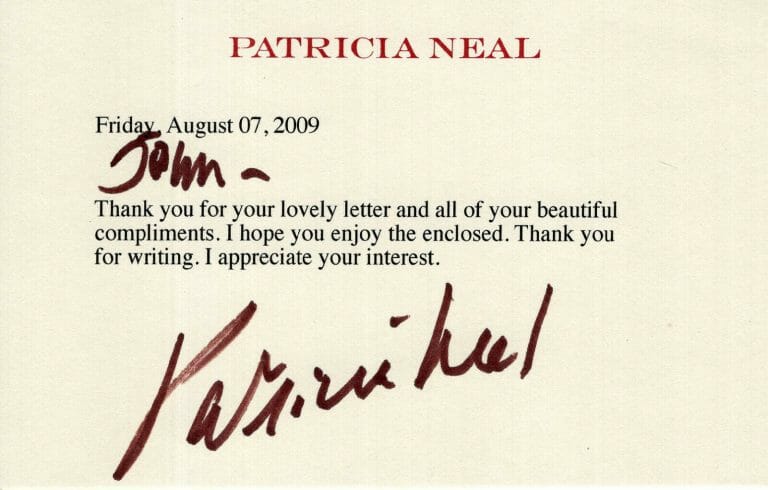 PATRICIA NEAL
Friday, August 07, 2009
John -
Thank you for your lovely letter and all of your beautiful
compliments. I hope you enjoy the enclosed. Thank you
for writing. I appreciate your interest.
Patricia Neal